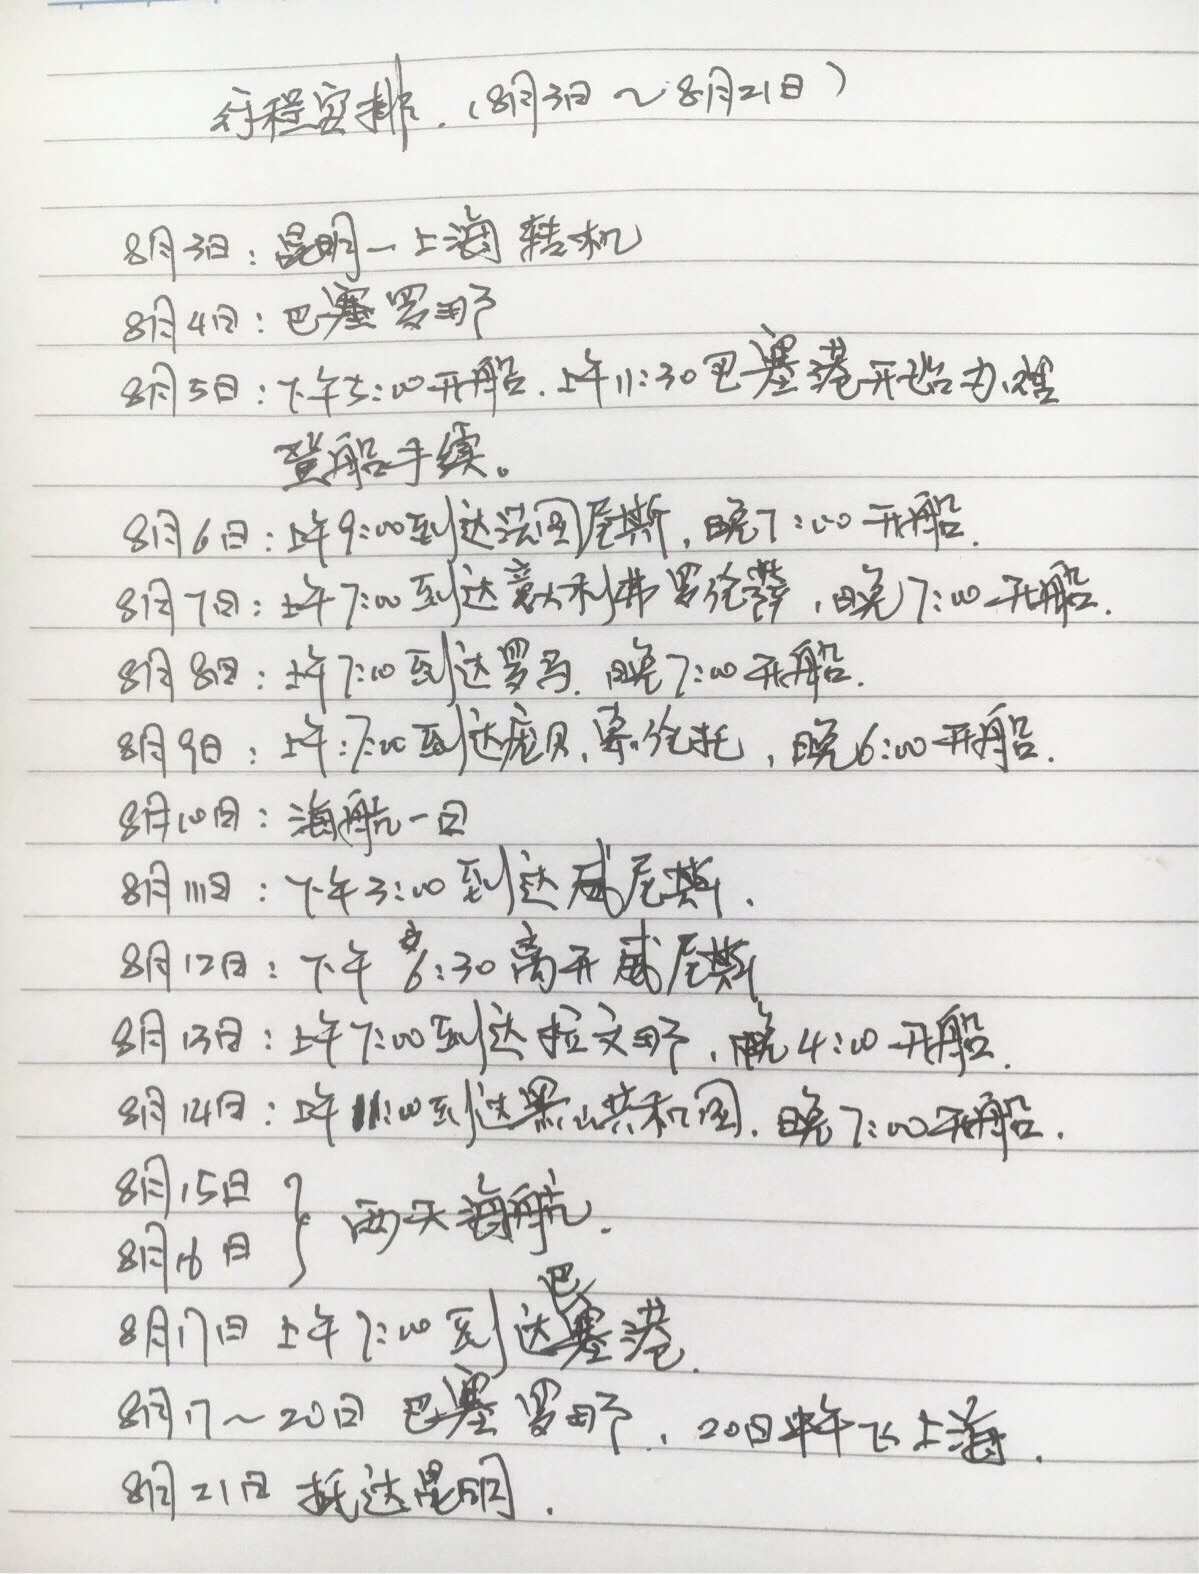 行程安排.（8月3日～8月21日）
8月3日：昆明—上海 转机
8月4日：巴塞罗那
8月5日：下午5:00开船.上午11:30巴塞港开始办理
登船手续。
8月6日：上午9:00到达法国尼斯，晚7:00开船.
8月7日：上午7:00到达意大利弗罗伦萨，晚7:00开船.
8月8日：上午7:00到达罗马.晚7:00开船.
8月9日：上午:7:00到达庞贝，索伦托，晚6:00开船.
8月10日：海航一日
8月11日：下午3:00到达威尼斯.
8月12日：下午6:30离开威尼斯
8月13日：上午7:00到达拉文那，晚4:00开船.
8月14日：上午11:00到达黑山共和国.晚7:00开船.
8月15日
8月16日 } 两天海航.
8月17日 上午7:00到达巴塞港.
8月17～20日 巴塞罗那，20日中午飞上海.
8月21日 抵达昆明.